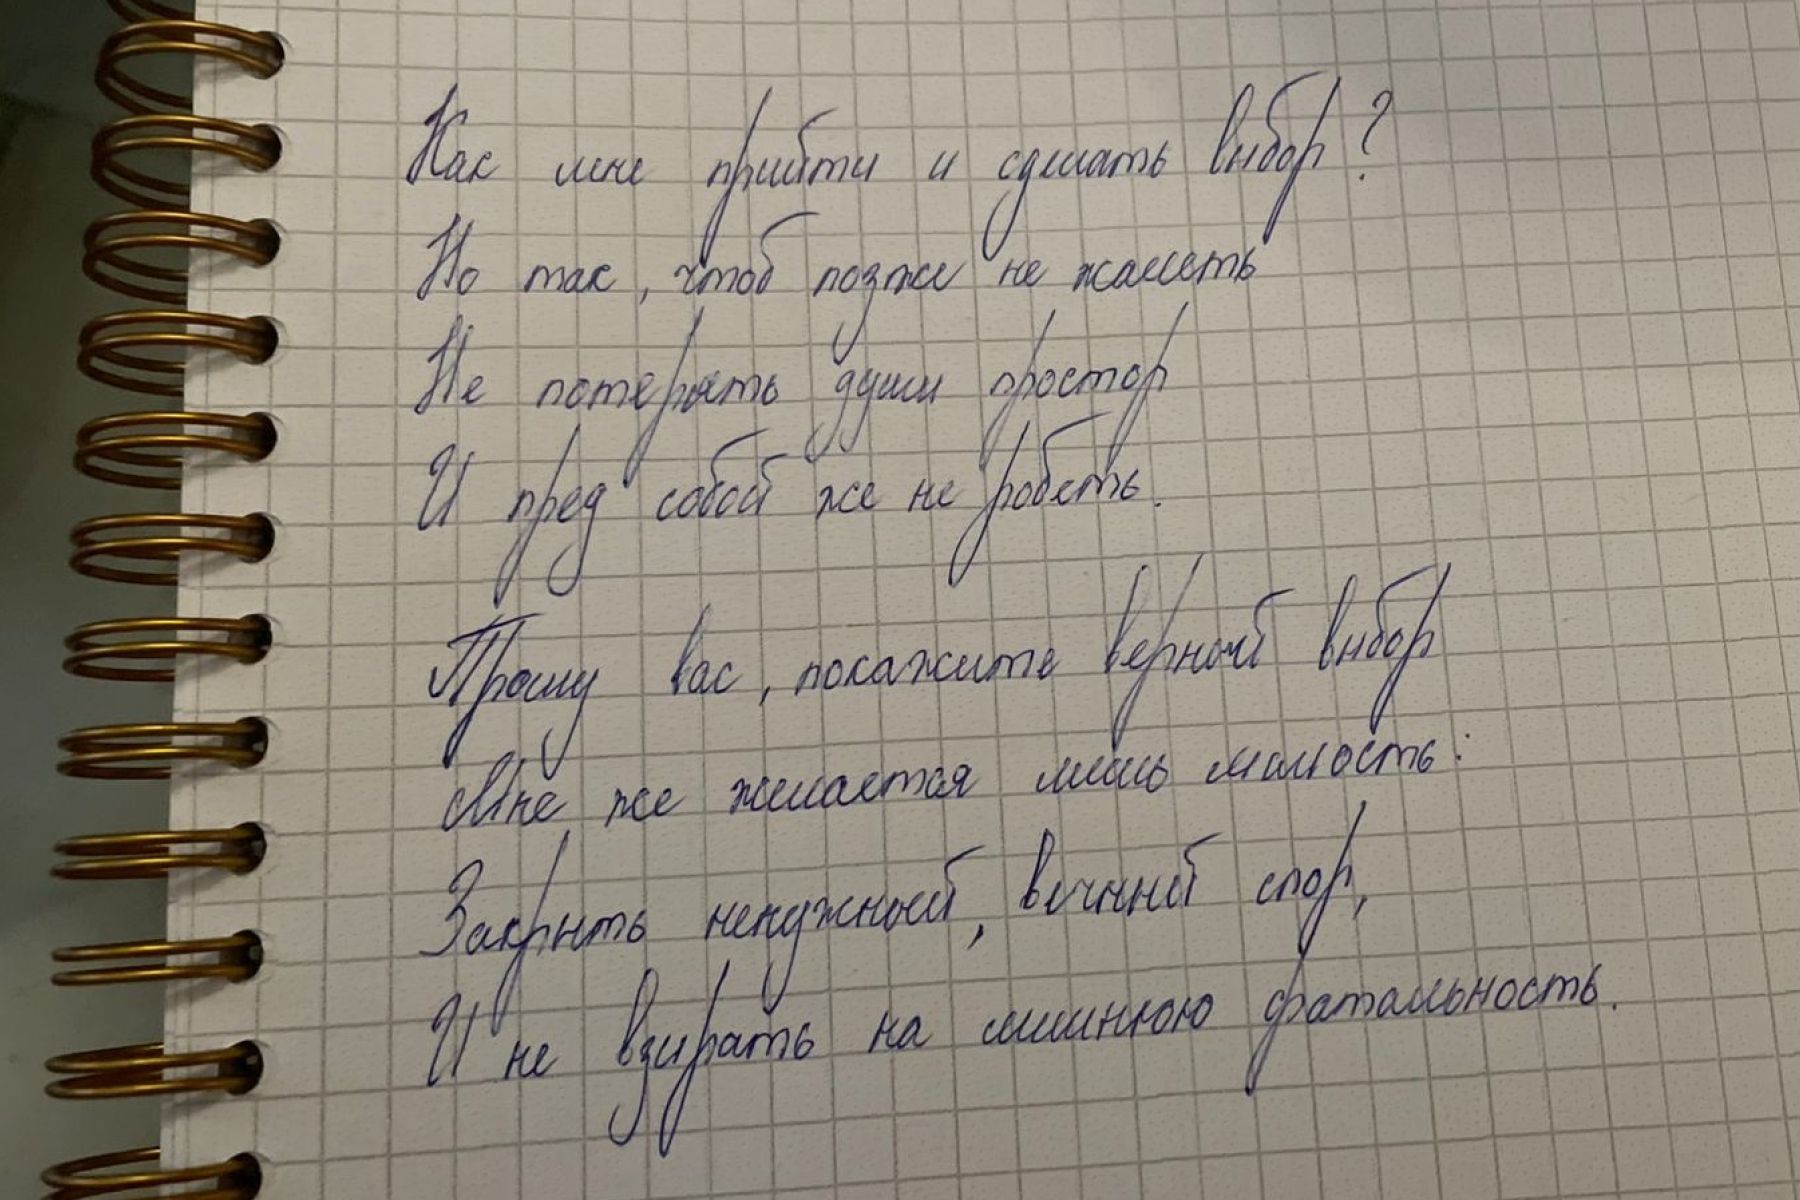 Как мне прийти и сделать выбор?
Но так, чтоб позже не жалеть
Не потерять души простор
И пред собой же не робеть.
Прошу вас, покажите верный выбор
Мне же желается лишь малость:
Закрыть ненужный, вечный спор,
И не взирать на лишнюю фатальность.